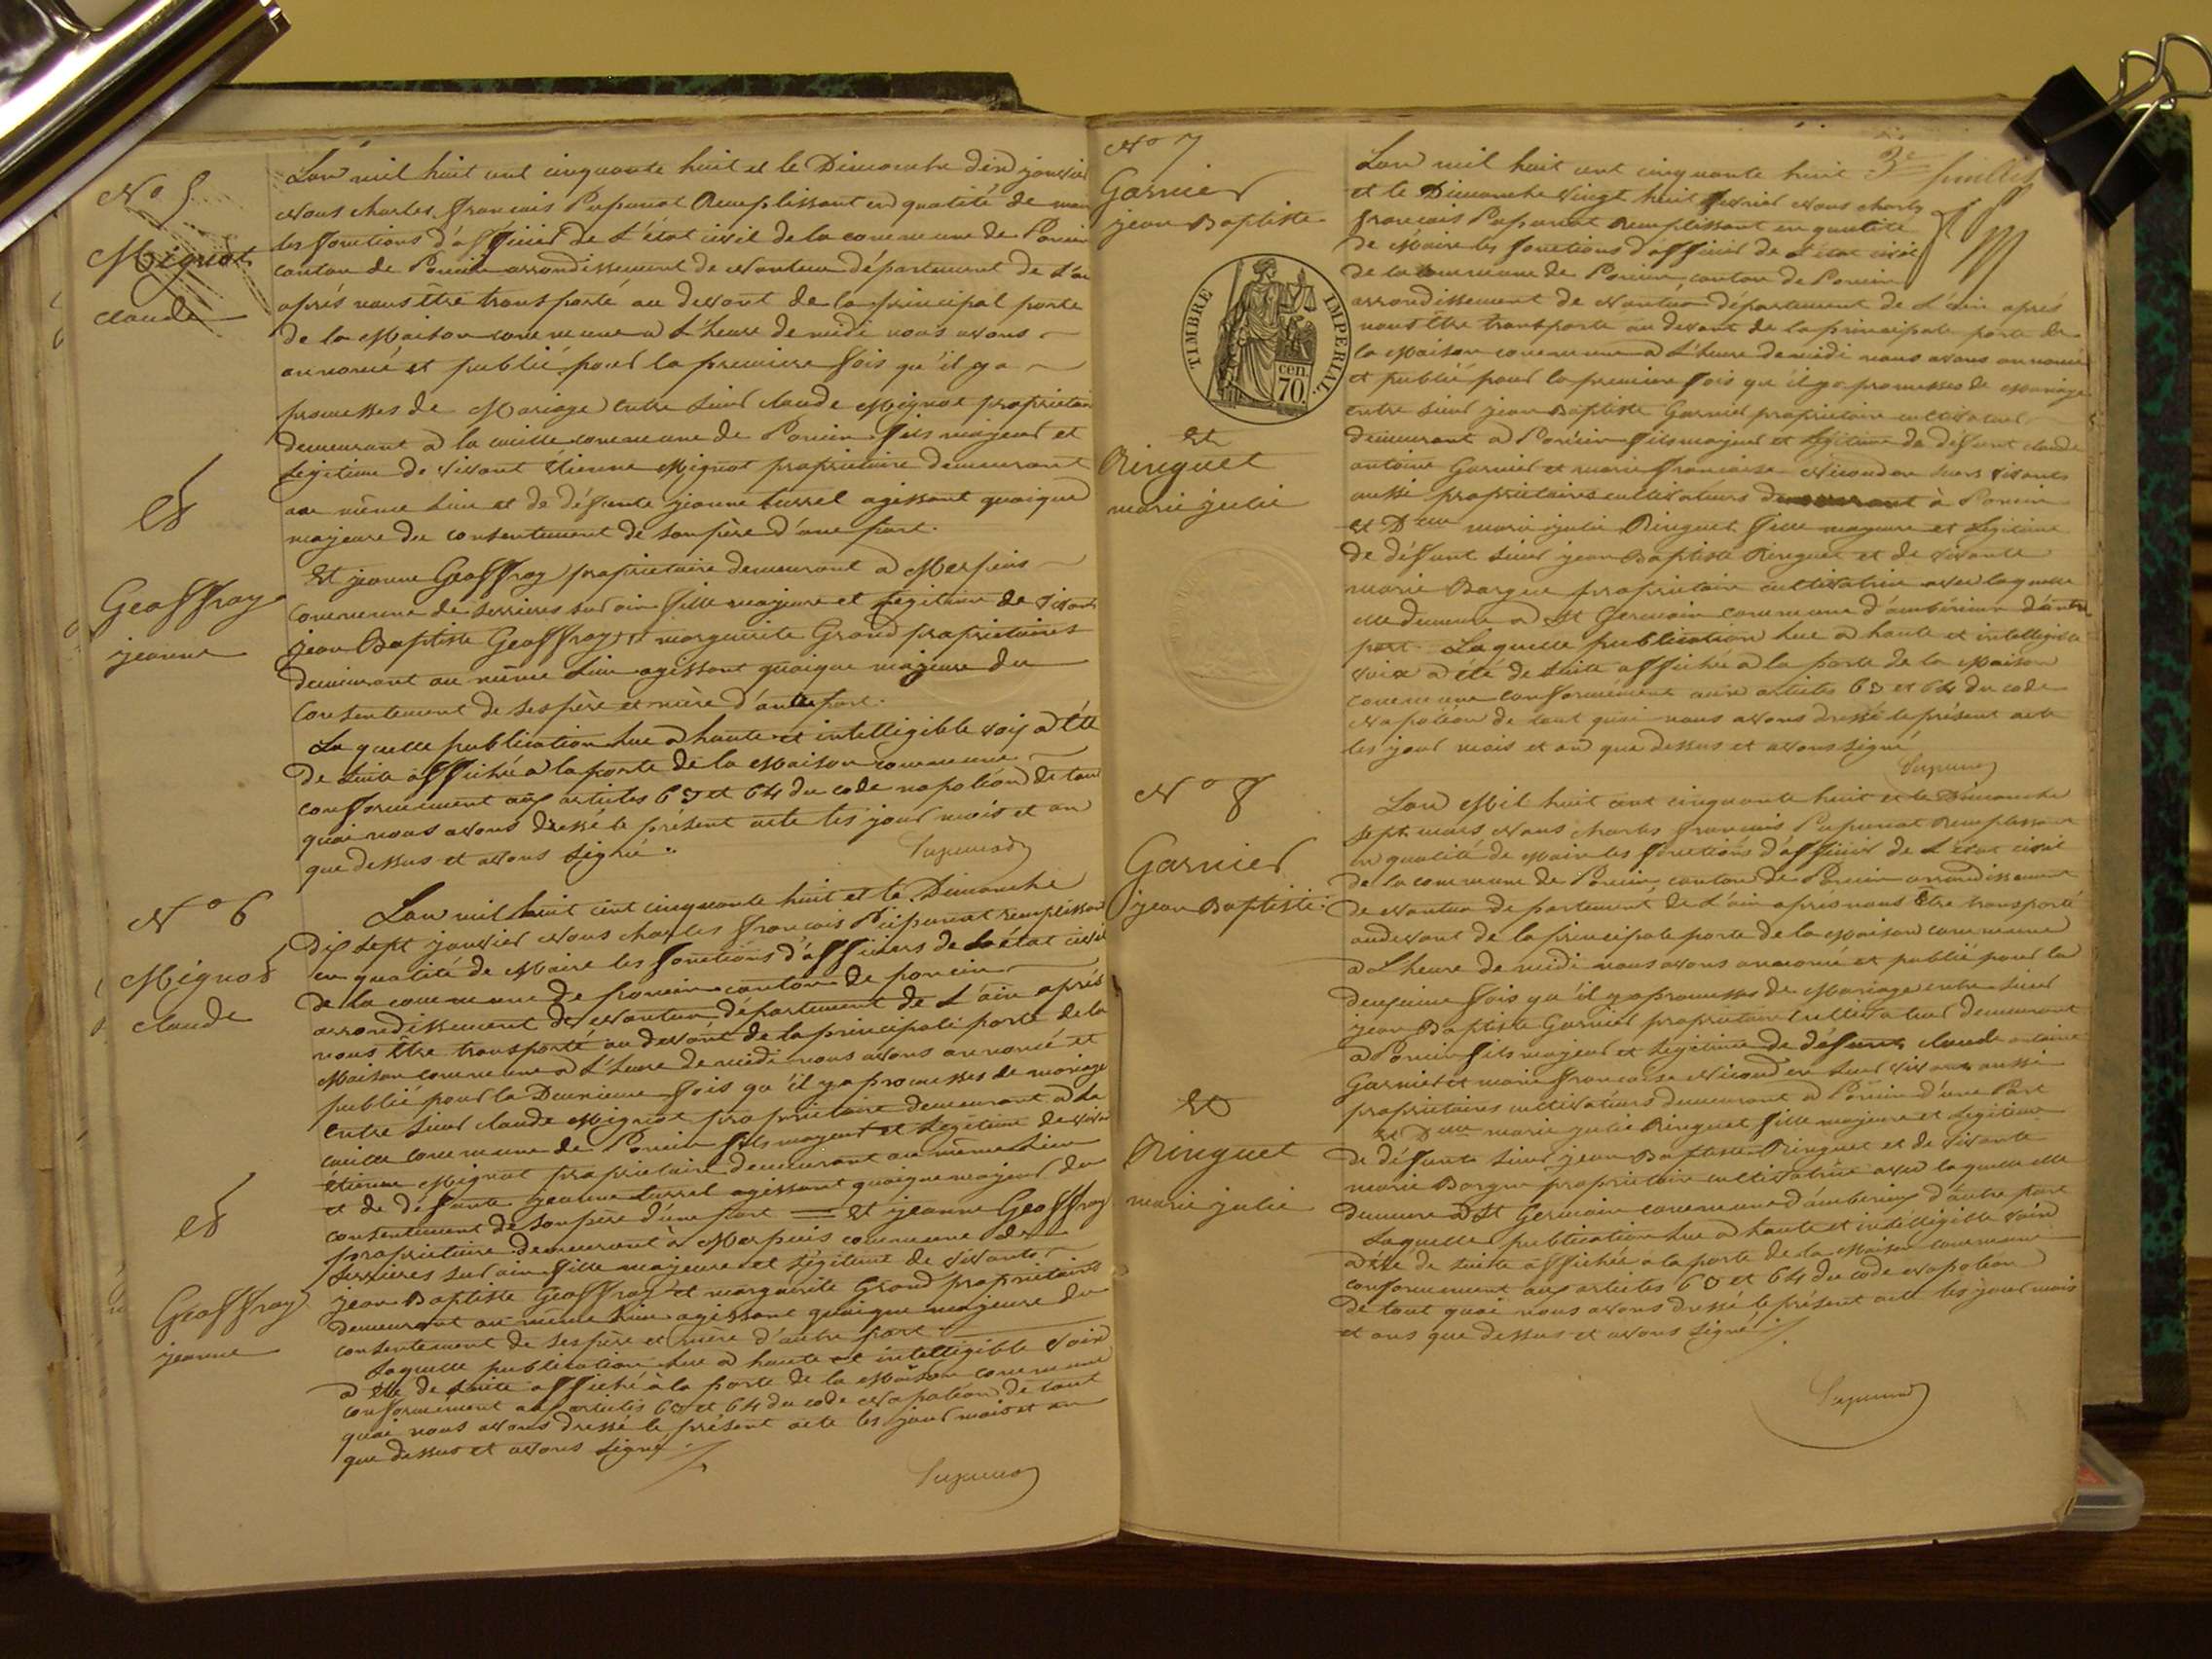 N° 5
Mignot
claude
et
Geoffray
jeanne
L'an mil huit cent cinquante huit et le Dimanche dix janvier
Nous charles françois Papunat Remplissant en qualité de
les fonctions d'officier de L'état civil de la commune de Poncin
canton de Poncin arrondissement de Nantua département de L'ain
aprés nous être transporté au devant de la principal porte
de la Maison commune a L'heure de midi nous avons
annoncé et publié pour la premiere fois qu'il y a
promesses de Mariage entre sieur claude Mignot propriétaire
demeurant a la cueille commune de Poncin fils majeur et
legitime de vivant Etienne Mignot propriétaire demeurant
au même Lieu et de défunte jeanne turrel agissant quoique
majeure du consentement de son père d'une part.
Et jeanne Geoffray propriétaire demeurant a Merpuis
commune de serrieres sur ain fille majeure et legitime de vivants
jean Baptiste Geoffray et marguerite Grand propriétaires
demeurant au même Lieu agissant quoique majeure du
consentement de ses père et mère d'autre part.
La quelle publication Lue a haute et intelligible voix a été
de suite affiché a la porte de la Maison commune
conformément aux articles 63 et 64 du code napoléon de tout
quoi nous avons dressé le présent acte les jour mois et an
que dessus et avons signé.
Papunat
N° 6
Mignot
claude
et
Geoffray
jeanne
L'an mil huit cent cinquante huit et le Dimanche
dix sept janvier Nous charles françois Papunat remplissant
en qualité de Maire les fonctions d'officiers de L'état civil
de la commune de poncin canton de poncin
arrondissement de Nantua département de L'ain aprés
nous être transporté au devant de la principale porte de la
Maison commune a L'heure de midi nous avons annoncé et
publié pour la Deuxieme fois qu'il y a promesses de mariage
entre sieur claude Mignot propriétaire demeurant a La
cueille commune de Poncin fils majeur et Legitime de vivant
Etienne Mignot propriétaire demeurant au même Lieu
et de défunte jeanne turrel agissant quoique majeur du
consentement de son père d'une part = Et jeanne Geoffray
propriétaire demeurant à Merpuis commune de
serrieres sur ain fille majeure et Légitime de vivants
jean Baptiste Geoffray et marguerite Grand propriétaires
demeurant au même Lieu agissant quoique majeure du
consentement de ses père et mère d'autre part
Laquelle publication Lue a haute et intelligible voix
a été de suite affiché à la porte de la Maison commune
conformément aux articles 63 et 64 du code Napoléon de tout
quoi nous avons dressé le présent acte les jour mois et an
que dessus et avons signé.
Papunat
3e feuillet
N° 7
Garnier
jean Baptiste
TIMBRE IMPERIAL
cen.
70.
et
Ringuet
marie julie
L'an mil huit cent cinquante huit
et le Dimanche vingt huit fevrier Nous charles
françois Papunat Remplissant en qualité
de Maire les fonctions d'officier de L'état civil
de la commune de Poncin canton de Poncin
arrondissement de Nantua département de L'ain aprés
nous être transporté au devant de la principale porte de
la Maison commune a L'heure de midi nous avons annoncé
et publié pour la premiere fois qu'il y a promesses de Mariage
entre sieur jean Baptiste Garnier propriétaire cultivateur
demeurant a Poncin fils majeur et Légitime de défunt claude
antoine Garnier et marie françoise vivants
aussi propriétaires cultivateurs demeurant à Poncin
et Delle marie julie Ringuet fille majeure et Légitime
de défunt sieur jean Baptiste Ringuet et de vivante
marie Bargue propriétaire cultivatrice avec laquelle
elle demeure a St Germain commune d'ambérieux d'autre
part. Laquelle publication Lue a haute et intelligible
voix a été de suite affichée a la porte de la Maison
commune conformément aux articles 63 et 64 du code
Napoléon de tout quoi nous avons dressé le présent acte
les jour mois et an que dessus et avons signé
Papunat
N° 8
Garnier
jean Baptiste.
et
Ringuet
marie julie
L'an Mil huit cent cinquante huit et le Dimanche
sept mars Nous charles françois Papunat Remplissant
en qualité de Maire les fonctions d'officier de L'état civil
de la commune de Poncin canton de Poncin arrondissement
de Nantua département de L'ain apres nous être transporté
au devant de la principale porte de la Maison commune
a L'heure de midi nous avons annoncé et publié pour la
deuxieme fois qu'il y a promesses de Mariage entre sieur
jean Baptiste Garnier propriétaire Cultivateur demeurant
a Poncin fils majeur et Légitime de défunt claude antoine
Garnier et marie françoise vivants aussi
propriétaires cultivateurs demeurant a Poncin d'une Part
Et Delle marie julie Ringuet fille majeure et Legitime
de défunt sieur jean Baptiste Ringuet et de vivante
marie Bargue propriétaire cultivatrice avec laquelle elle
demeure a St Germain commune d'ambérieux d'autre part
Laquelle publication Lue a haute et intelligible voix
a été de suite affichée a la porte de la Maison commune
conformément aux articles 63 et 64 du code Napoléon
de tout quoi nous avons dressé le présent acte les jour mois
et ans que dessus et avons signé
Papunat